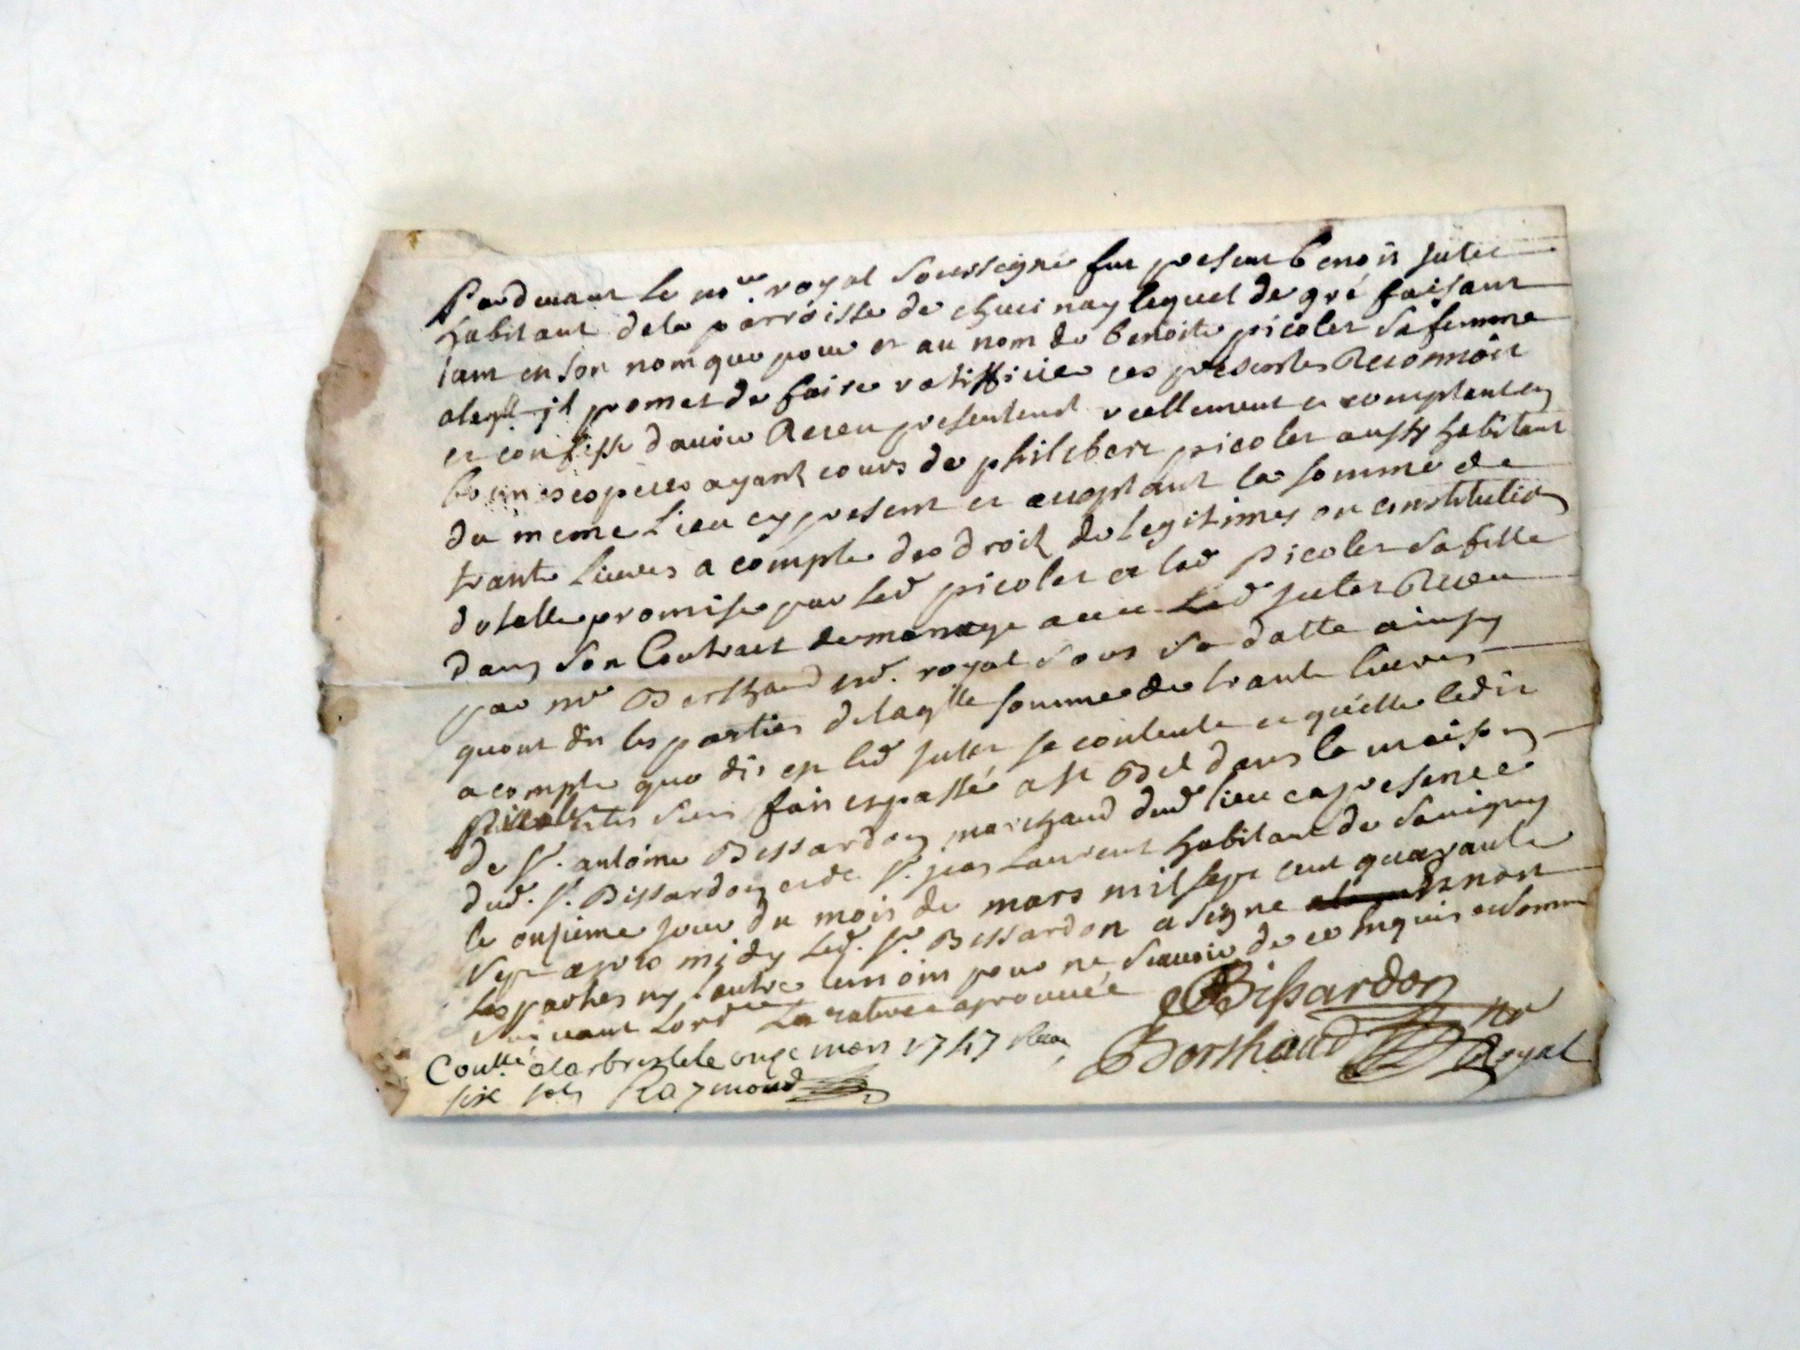 Pardevant le no.re royal soussigné fut present benois suter
habitant dela parroisse de chevinay lequel de gré faisant
tant en son nom que pour et au nom de benoite picolet sa femme
alaqlle il promet de faire ratiffiier ces presentes Reconnoit
et confesse davoir Receu presentement reellement et comptant en
bonnes especes ayant cours de philibert picolet aussy habitant
du meme Lieu cy present et acceptant la somme de
trante Livres a compte des droit de legitimes ou constitution
dotalle promise par led picolet a lad picolet sa fille
dans son Contract de mariage avec Led suter Receu
par me Berthaud no. royal sous sa datte ainsy
quont dit les parties delaqlle somme de trante livres
a compte que dit est led suter se contente et quitte ledit
picolet fait et passé a st Bel dans la maison
de sr. antoine Bissardon marchand dud lieu en presence
dud. sr. Bissardon et de sr. jean Laurent habitant de Savigny
le onsieme jour du mois de mars mil sept cent quarante
sept apres midy led. sr. Bissardon a signé et non
les parties ny lautre temoin pour ne scavoir de ce Enquis et somme
suivant Lord.ce La rature aprouvée
Bissardon
Berthaud no Royal
Con.llé a larbresle le onze mars 1747 Recu
six sols Raymond